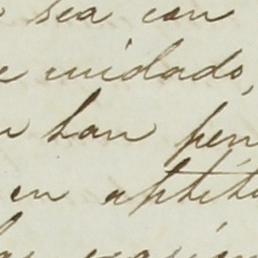 sea con
e cuidado,
han pen
en aptitu